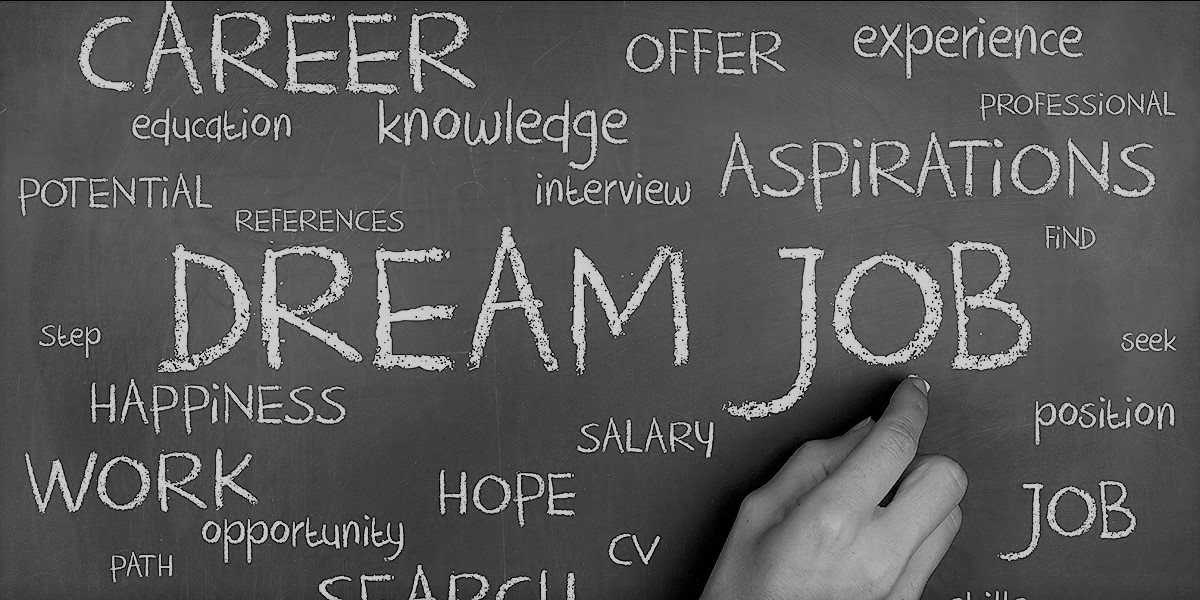 CAREER
OFFER
experience
education
knowledge
PROFESSiONAL
ASPiRATiONS
POTENTiAL
interview
REFERENCES
FiND
DREAM JOB
Step
seek
HAPPiNESS
position
SALARY
WORK
HOPE
JOB
opportunity
CV
PATH
SEARCH
skills